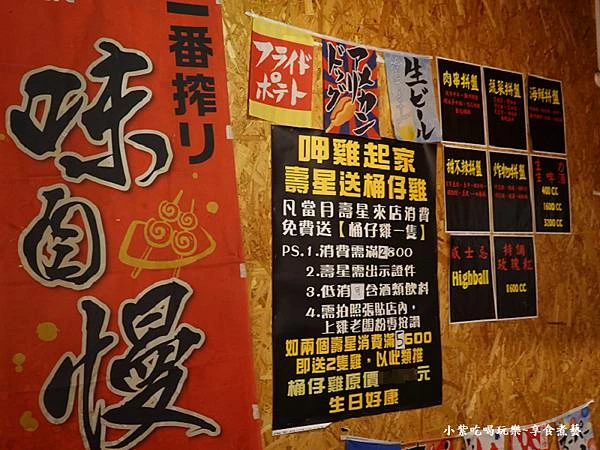 一番搾り
味自慢
フライド
ポテト
アメリカン
ドッグ
生ビール
呷雞起家
壽星送桶仔雞
凡當月壽星來店消費
免費送【桶仔雞一隻】
PS.1.消費需滿2800
2.壽星需出示證件
3.低消 含酒類飲料
4.需拍照張貼店內，
上雞老闆粉專按讚
如兩個壽星消費滿5600
即送2隻雞，以此類推
桶仔雞原價 元
生日好康
肉串拼盤
蔬菜拼盤
海鮮拼盤
甜不辣拼盤
炸物拼盤
400 CC
1600 CC
3200 CC
威士忌
Highball
特調
玫瑰紅
1600 CC
小紫吃喝玩樂~享食煮藝